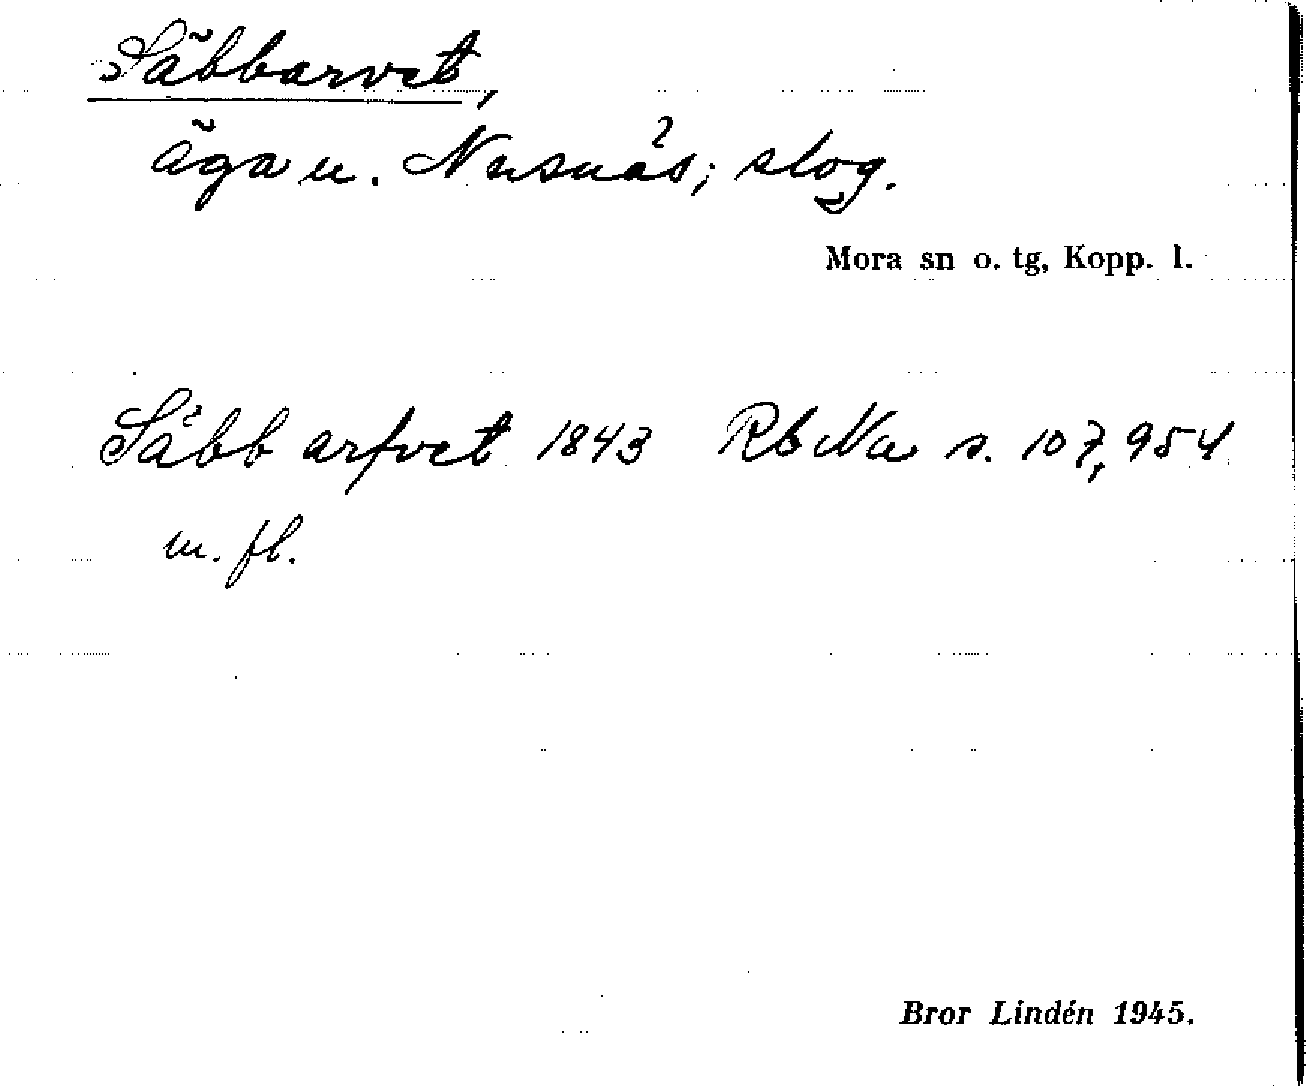 Säbbarvet,
äga u. Nusnäs; slog.
Mora sn o. tg, Kopp. l.
Säbb arfvet 1843 Rb Nu s. 107, 954
m. fl.
Bror Lindén 1945.